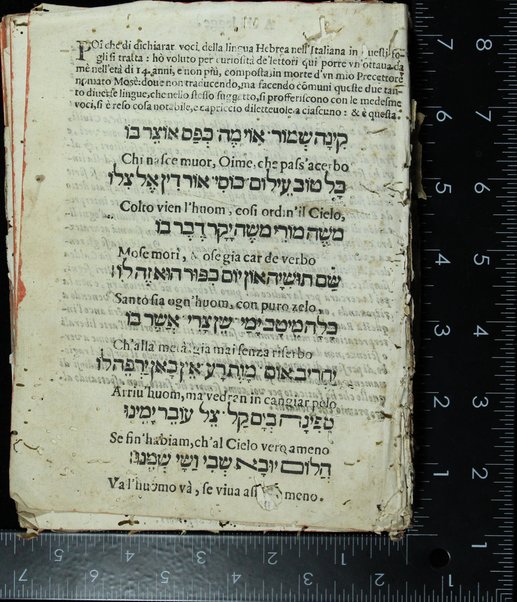 POi che di dichiarar voci della lingua Hebrea nell'Italiana in questi fo-
gli si tratta: hò voluto per curiosità de'lettori qui porre vn'ottaua da
me nell'età di 14. anni, e non più, composta in morte d'vn mio Precettore
nomato Mosè: doue non traducendo, ma facendo comuni queste due tan-
to diuerse lingue, che nello stesso suggetto, si profferiscono con le medesme
voci, si è reso cosa notabile, e capriccio diletteuole a ciascuno: & è questa.
קִינָה שְׁמוֹר אוֹי מֶה כְּפַּס אוֹצֵר בּוֹ
Chi nasce muor, Oime, che pass'acerbo
כָּל טוֹב עֵילוֹם כּוֹסִי אוֹר דִין אֶל צִלּוֹ
Colto vien l'huom, cosi ordin'il Cielo,
מֹשֶׁה מוֹרִי מֹשֶׁה יָקָר דֶבֶר בּוֹ
Mose morì, Mose gia car de verbo
שָׂם תּוּשִׁיָה אוֹן יוֹם כִּפּוּר הוּא זֶה לוֹ
Santo sia ogn'huom, con puro zelo,
כָּלָה מֵיטַב יָמַי שֵׁן צָרִי אֲשֶׁר בּוֹ
Ch'alla metà, gia mai senza riserbo
יַחֲרִיב אוֹם מָוֶת רָע אֵין כָּאן יַרְפֶּה לוֹ
Arriu'huom, ma vedran in cangiar pelo
סְפִינָה בְּיָם קַל צֵל עוֹבֵר יָמֵינוּ
Se fin'habiam, ch'al Cielo vero ameno
הֲלוֹם יוּבָא שְׁבִי וְשַׁי שְׁמֵנוּ
Va l'huomo và, se viua assi meno.